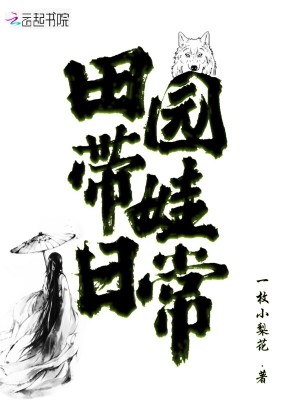 云起书院
田园
带娃
日常
一枝小梨花·著